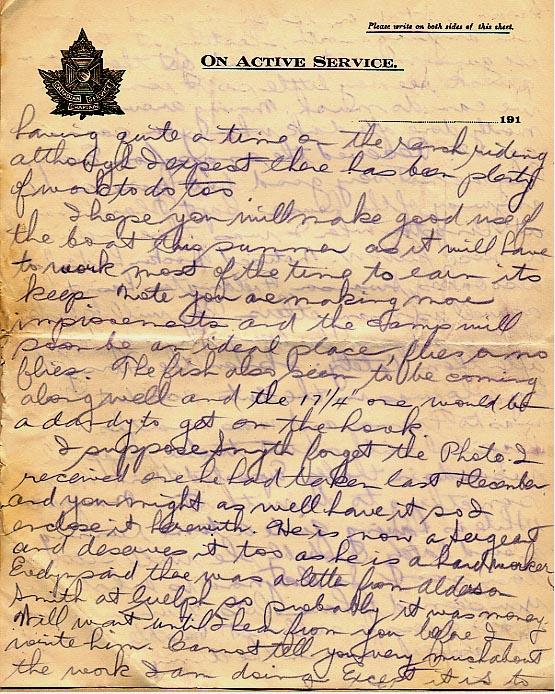 Please write on both sides of this sheet.
ON ACTIVE SERVICE.
191
having quite a time on the ranch riding
although I expect there has been plenty
of work to do too
I hope you will make good use of
the boat this summer as it will have
to work most of the time to earn its
keep. Note you are making more
improvements and the camp will
soon be an ideal place, flies or no
flies. The fish also seem to be coming
along well and the 17 1/4" one would be
a dandy to get on the hook.
I suppose Smyth forgot the Photo I
received one he had taken last December
and you might as well have it so I
enclose it herewith. He is now a Sergeant
and deserves it too as he is a hard worker
said there was a letter from
Smith at Guelph so probably it was money.
Will wait until I hear from you before I
write him. Cannot tell you very much about
the work I am doing. Except it is to